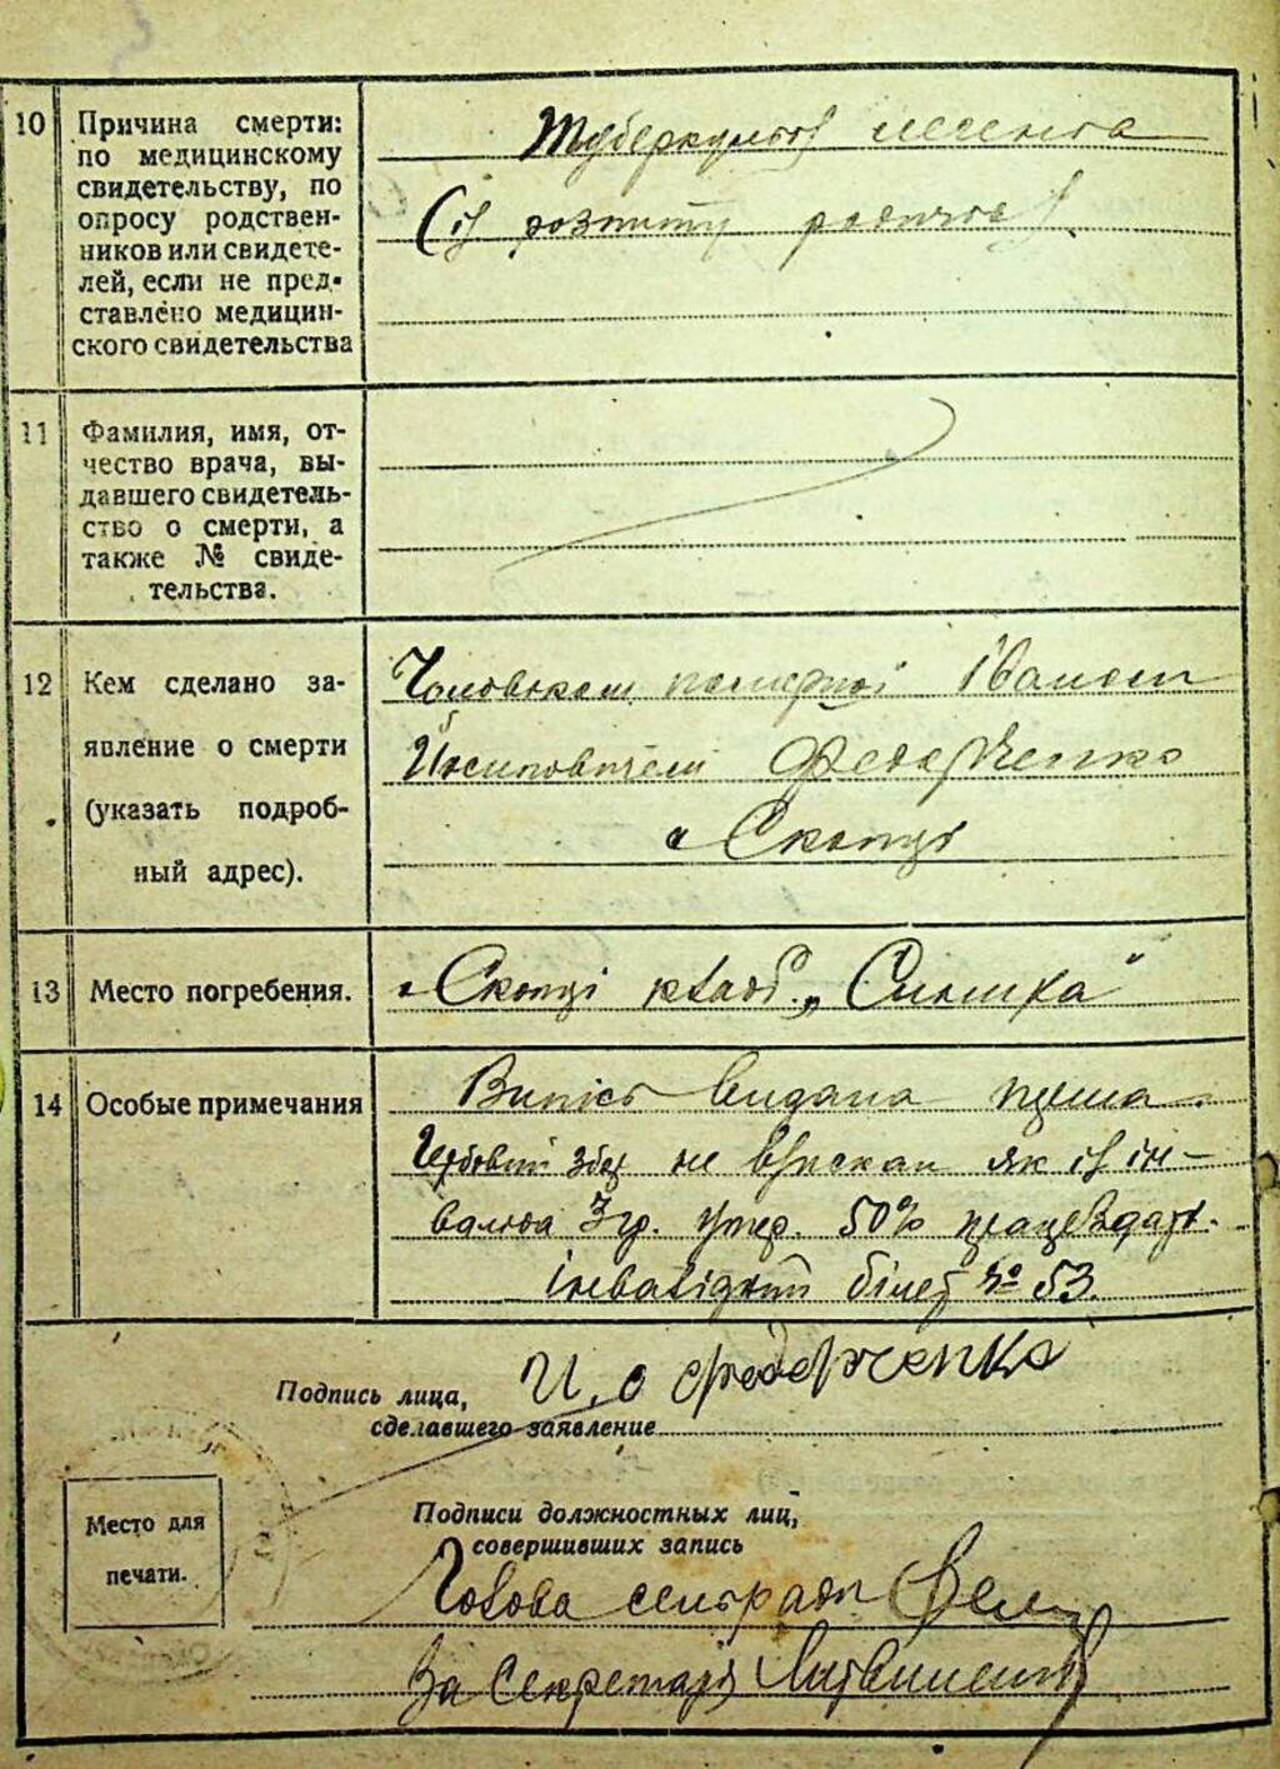 10 Причина смерти:
по медицинскому
свидетельству, по
опросу родствен-
ников или свидете-
лей, если не пред-
ставлено медицин-
ского свидетельства
Туберкульоз легенів
(із розпиту родичів)
11 Фамилия, имя, от-
чество врача, вы-
давшего свидетель-
ство о смерти, а
также № свиде-
тельства.
12 Кем сделано за-
явление о смерти
(указать подроб-
ный адрес).
Чоловіком померлої Іваном
Федорченко
с Скопці
13 Место погребения.
с Скопці кладб. „
14 Особые примечания
Випись видана
не як із ін-
валіда 3 гр. 50%
інвалідний білет № 53.
Подпись лица,
сделавшего заявление
И. О Федорченко
Место для
печати.
Подписи должностных лиц,
совершивших запись
Голова сільради
За Секретаря